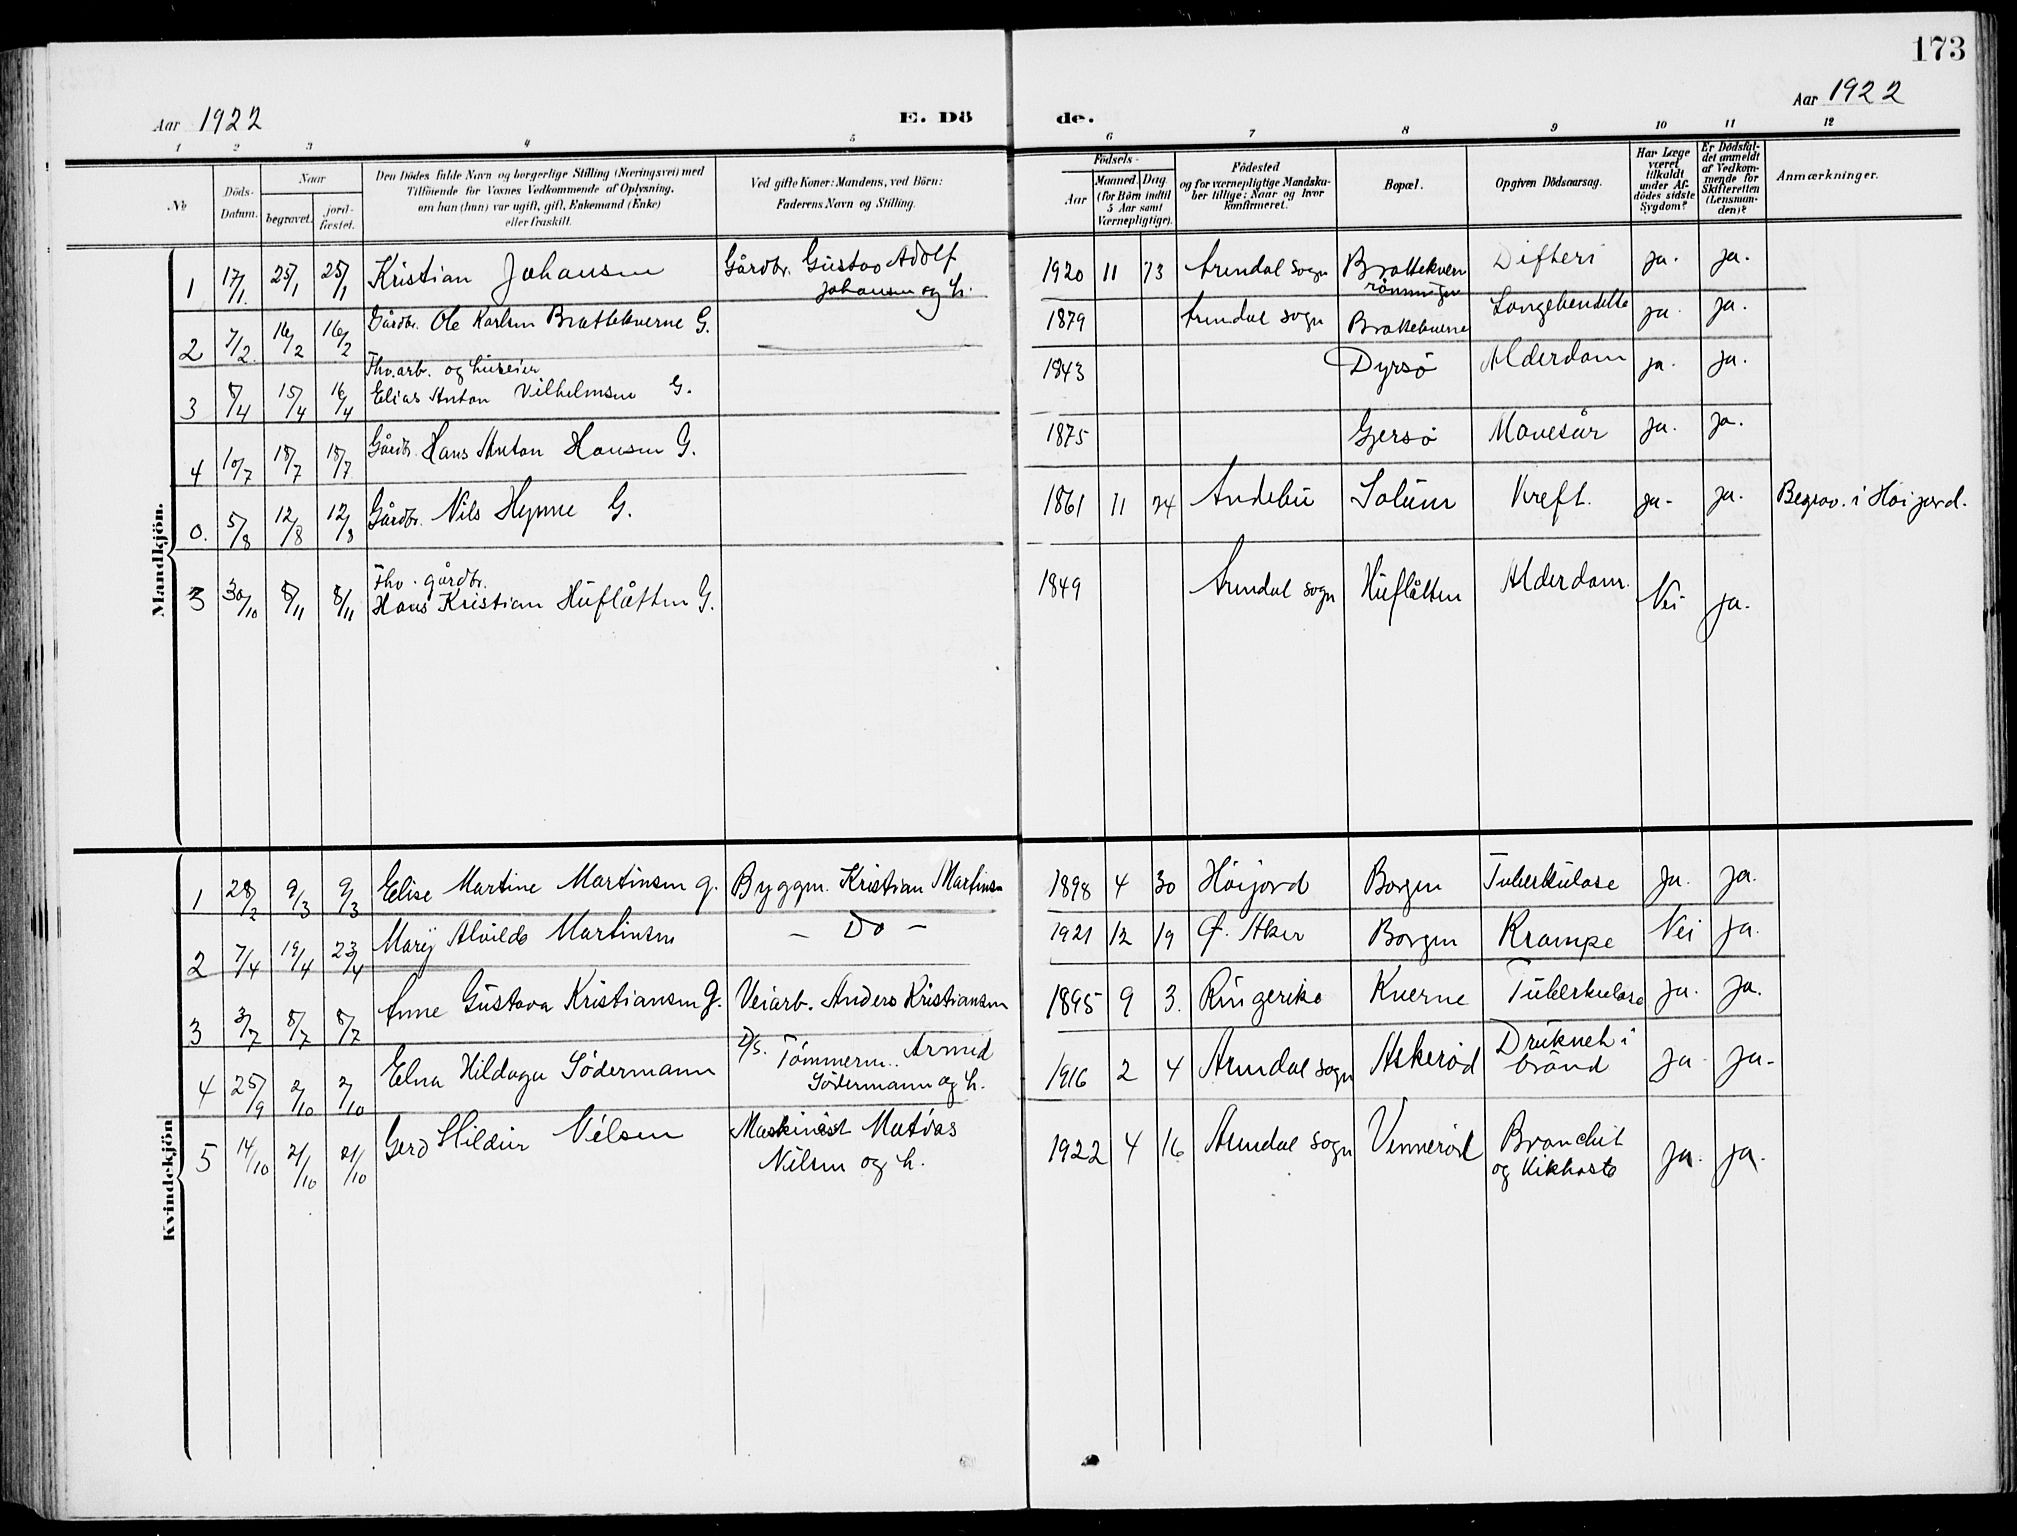 173
Aar 1922
E. Dö
de.
Aar 1922
1 2 3 4 5 6 7 8 9 10 11 12
No
Döds-Datum.
Naar
begravet.
jord-fæstet.
Den Dödes fulde Navn og borgerlige Stilling (Næringsvei) med
Tilföiende for Voxnes Vedkommende af Oplysning,
om han (hun) var ugift, gift, Enkemand (Enke)
eller fraskilt.
Ved gifte Koner: Mandens, ved Börn:
Faderens Navn og Stilling.
Födsels-
Aar
Maaned. Dag
(for Börn indtil
5 Aar samt
Værnepligtige).
Födested
og for værnepligtige Mandska-
ber tillige: Naar og hvor
konfirmeret.
Bopæl.
Opgiven Dödsaarsag.
Har Læge
været
tilkaldt
under Af-
dödes sidste
Sygdom?
Er Dödsfal-
det anmeldt
af Vedkom-
mende for
Skifteretten
(Lensman-
den)?
Anmærkninger.
Mandkjön.
1 17/1 25/1 25/1 Kristian Johansen Gårdbr. Gustav Adolf Johansen og h. 1920 11 Arendal sogn Brattekvern Difteri ja. ja.
2 7/2 16/2 16/2 Gårdbr. Ole Karlsen Brattekverne G. 1879 Arendal sogn Brattekverne ja. ja.
Fhv. arb. og huseier
3 8/4 15/4 16/4 Elias Anton Vilhelmsen G. 1843 Dyrsø Alderdom ja. ja.
4 10/7 18/7 18/7 Gårdbr. Hans Anton Hansen G. 1875 Gjersø Mavesår ja. ja.
0. 5/8 12/8 12/8 Gårdbr. Nils Hynne G. 1861 11 24 Andebu Solum Kreft. ja. ja. Begrav. i Høijord.
Fhv. gårdbr.
30/10 8/11 8/11 Hans Kristian Huflåtten G. 1849 Arendal sogn Huflåtten Alderdom. Nei ja.
Kvindekjön
1 28/2 9/3 9/3 Elise Martine Martinsen g. Byggm. Kristian Martinsen 1898 4 30 Høijord Borgen Tuberkulose ja. ja.
2 7/4 19/4 23/4 Mary Alvilde Martinsen - Do - 1921 12 19 Ø. Aker Borgen Krampe Nei ja.
3 3/7 8/7 8/7 Anne Gustava Kristiansen g. Veiarb. Anders Kristiansen 1895 9 3. Ringerike Kverne Tuberkulose ja. ja.
4 25/9 2/10 2/10 Elna Hildagu Södermann D/s. Tömmerm. Arvid Södermann og h. 1916 2 4 Arendal sogn Askerød Druknet i brønd ja. ja.
5 14/10 21/10 21/10 Gerd Hildur Nilsen Maskinist Mathias Nilsen og h. 1922 4 16 Arendal sogn Vennerød Bronchit og Kikhoste ja. ja.